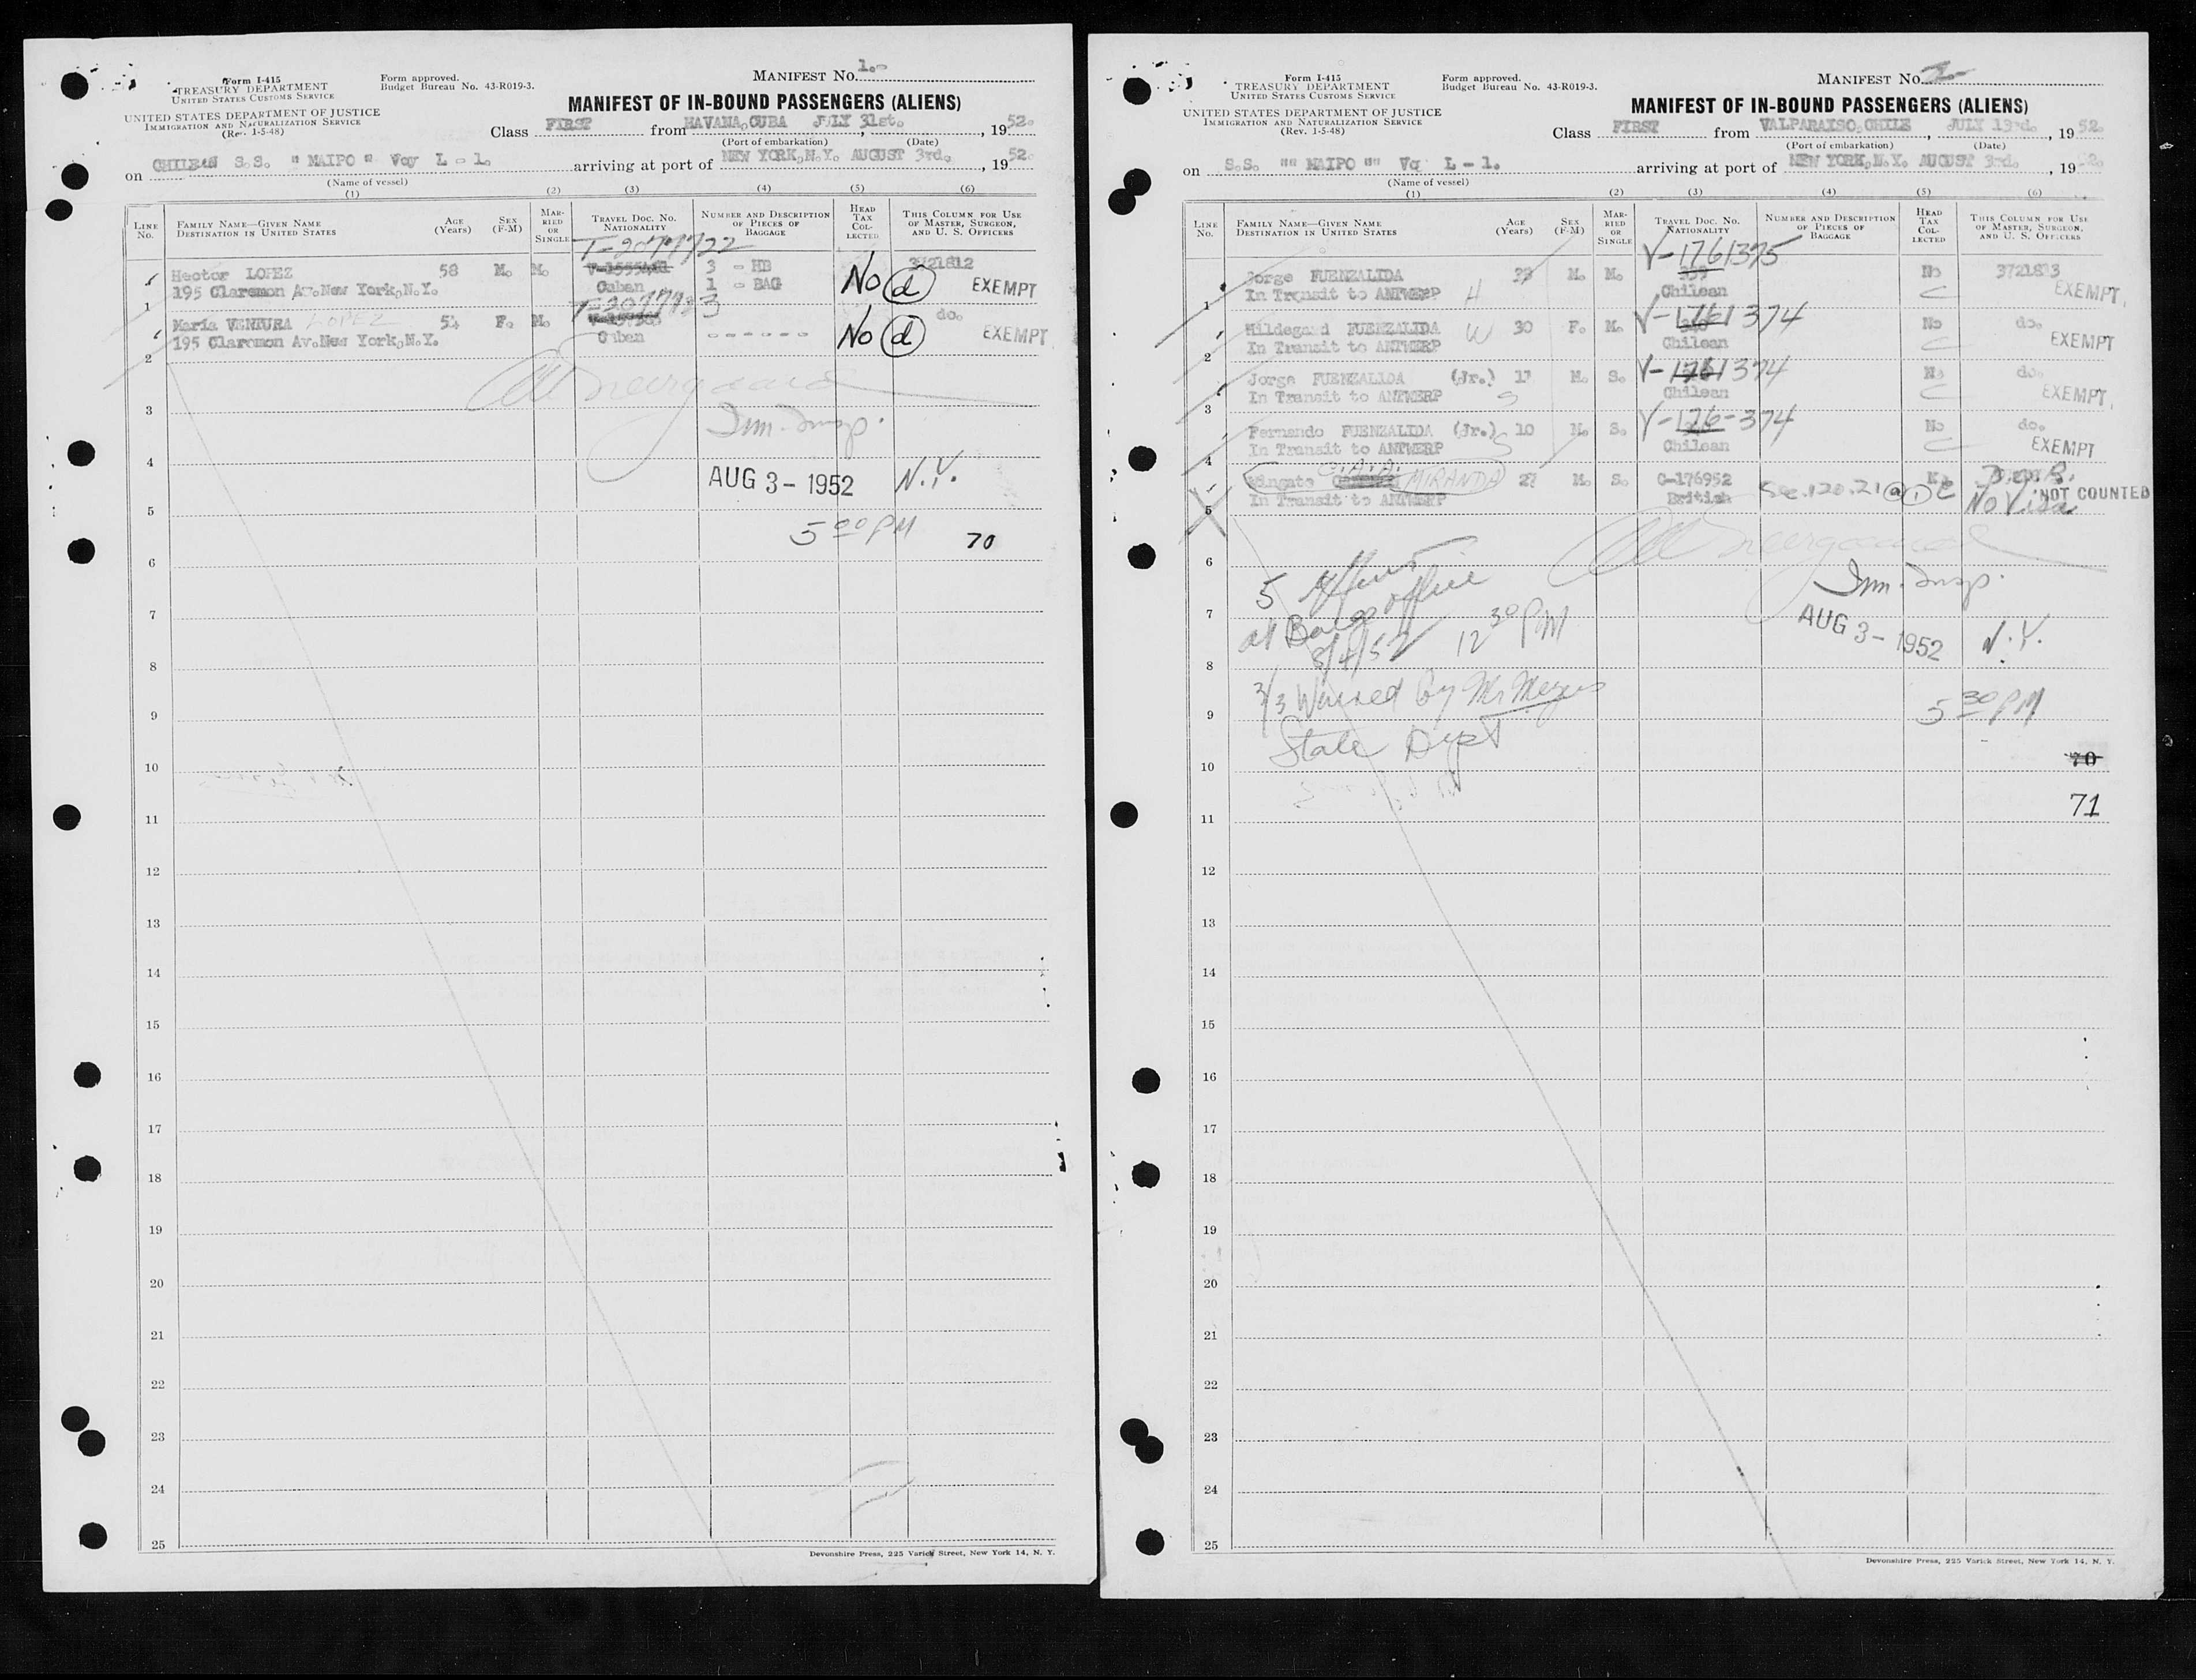 Form I-415
TREASURY DEPARTMENT
UNITED STATES CUSTOMS SERVICE
UNITED STATES DEPARTMENT OF JUSTICE
IMMIGRATION AND NATURALIZATION SERVICE
(Rev. 1-5-48)
Form approved.
Budget Bureau No. 43-R019-3.
MANIFEST NO. 1.-
MANIFEST OF IN-BOUND PASSENGERS (ALIENS)
Class FIRST from HAVANA,CUBA JULY 31st. , 1952.
(Port of embarkation) (Date)
on CHILEAN S.S. " MAIPO " Voy L - 1. arriving at port of NEW YORK,N.Y. AUGUST 3rd. , 1952.
(Name of vessel)
(1) (2) (3) (4) (5) (6)
LINE NO. FAMILY NAME—GIVEN NAME DESTINATION IN UNITED STATES AGE (Years) SEX (F-M) MARRIED OR SINGLE TRAVEL DOC. NO. NATIONALITY NUMBER AND DESCRIPTION OF PIECES OF BAGGAGE HEAD TAX COLLECTED THIS COLUMN FOR USE OF MASTER, SURGEON, AND U. S. OFFICERS
T-2077722
Hector LOPEZ 58 M. M. 3 - HB 3721812
195 Claremon Av.New York,N.Y. Cuban 1 - BAG No (d) EXEMPT
1
T-2077723
Maria VENTURA LOPEZ 54 F. M. do.
195 Claremon Av.New York,N.Y. Cuban - - - - - - No (d) EXEMPT
2
3
Imm. Insp.
4
AUG 3 - 1952 N.Y.
5
5 00 PM 70
6
7
8
9
10
11
12
13
14
15
16
17
18
19
20
21
22
23
24
25
Devonshire Press, 225 Varick Street, New York 14, N. Y.
Form I-415
TREASURY DEPARTMENT
UNITED STATES CUSTOMS SERVICE
UNITED STATES DEPARTMENT OF JUSTICE
IMMIGRATION AND NATURALIZATION SERVICE
(Rev. 1-5-48)
Form approved.
Budget Bureau No. 43-R019-3.
MANIFEST NO. 2-
MANIFEST OF IN-BOUND PASSENGERS (ALIENS)
Class FIRST from VALPARAISO,CHILE , JULY 13rd. , 1952.
(Port of embarkation) (Date)
on S.S. "" MAIPO "" Vq L - 1. arriving at port of NEW YORK,N.Y. AUGUST 3rd. , 1952.
(Name of vessel)
(1) (2) (3) (4) (5) (6)
LINE NO. FAMILY NAME—GIVEN NAME DESTINATION IN UNITED STATES AGE (Years) SEX (F-M) MARRIED OR SINGLE TRAVEL DOC. NO. NATIONALITY NUMBER AND DESCRIPTION OF PIECES OF BAGGAGE HEAD TAX COLLECTED THIS COLUMN FOR USE OF MASTER, SURGEON, AND U. S. OFFICERS
V-1761375
Jorge FUENZALIDA M. M. No 3721813
In Transit to ANTWERP H Chilean C EXEMPT
1
Hildegard FUENZALIDA W 30 F. M. V-1761374 No do.
In Transit to ANTWERP Chilean C EXEMPT
2
Jorge FUENZALIDA (Jr.) 17 M. S. V-1761374 No do.
In Transit to ANTWERP S Chilean C EXEMPT
3
Fernando FUENZALIDA (Jr.) S 10 M. S. V-176-374 No do.
In Transit to ANTWERP Chilean C EXEMPT
4
Wingate MIRANDA 27 M. S. C-176952 No
In Transit to ANTWERP British Sec.120.21 (a) (1) C NOT COUNTED
No Visa
5
6
5
Imm. Insp.
at Barge office
7
8/4/52 12 30 PM AUG 3 - 1952 N.Y.
8
3/3 Waived by Mr
9
5 30 PM
State Dept
10
70
11
71
12
13
14
15
16
17
18
19
20
21
22
23
24
25
Devonshire Press, 225 Varick Street, New York 14, N. Y.